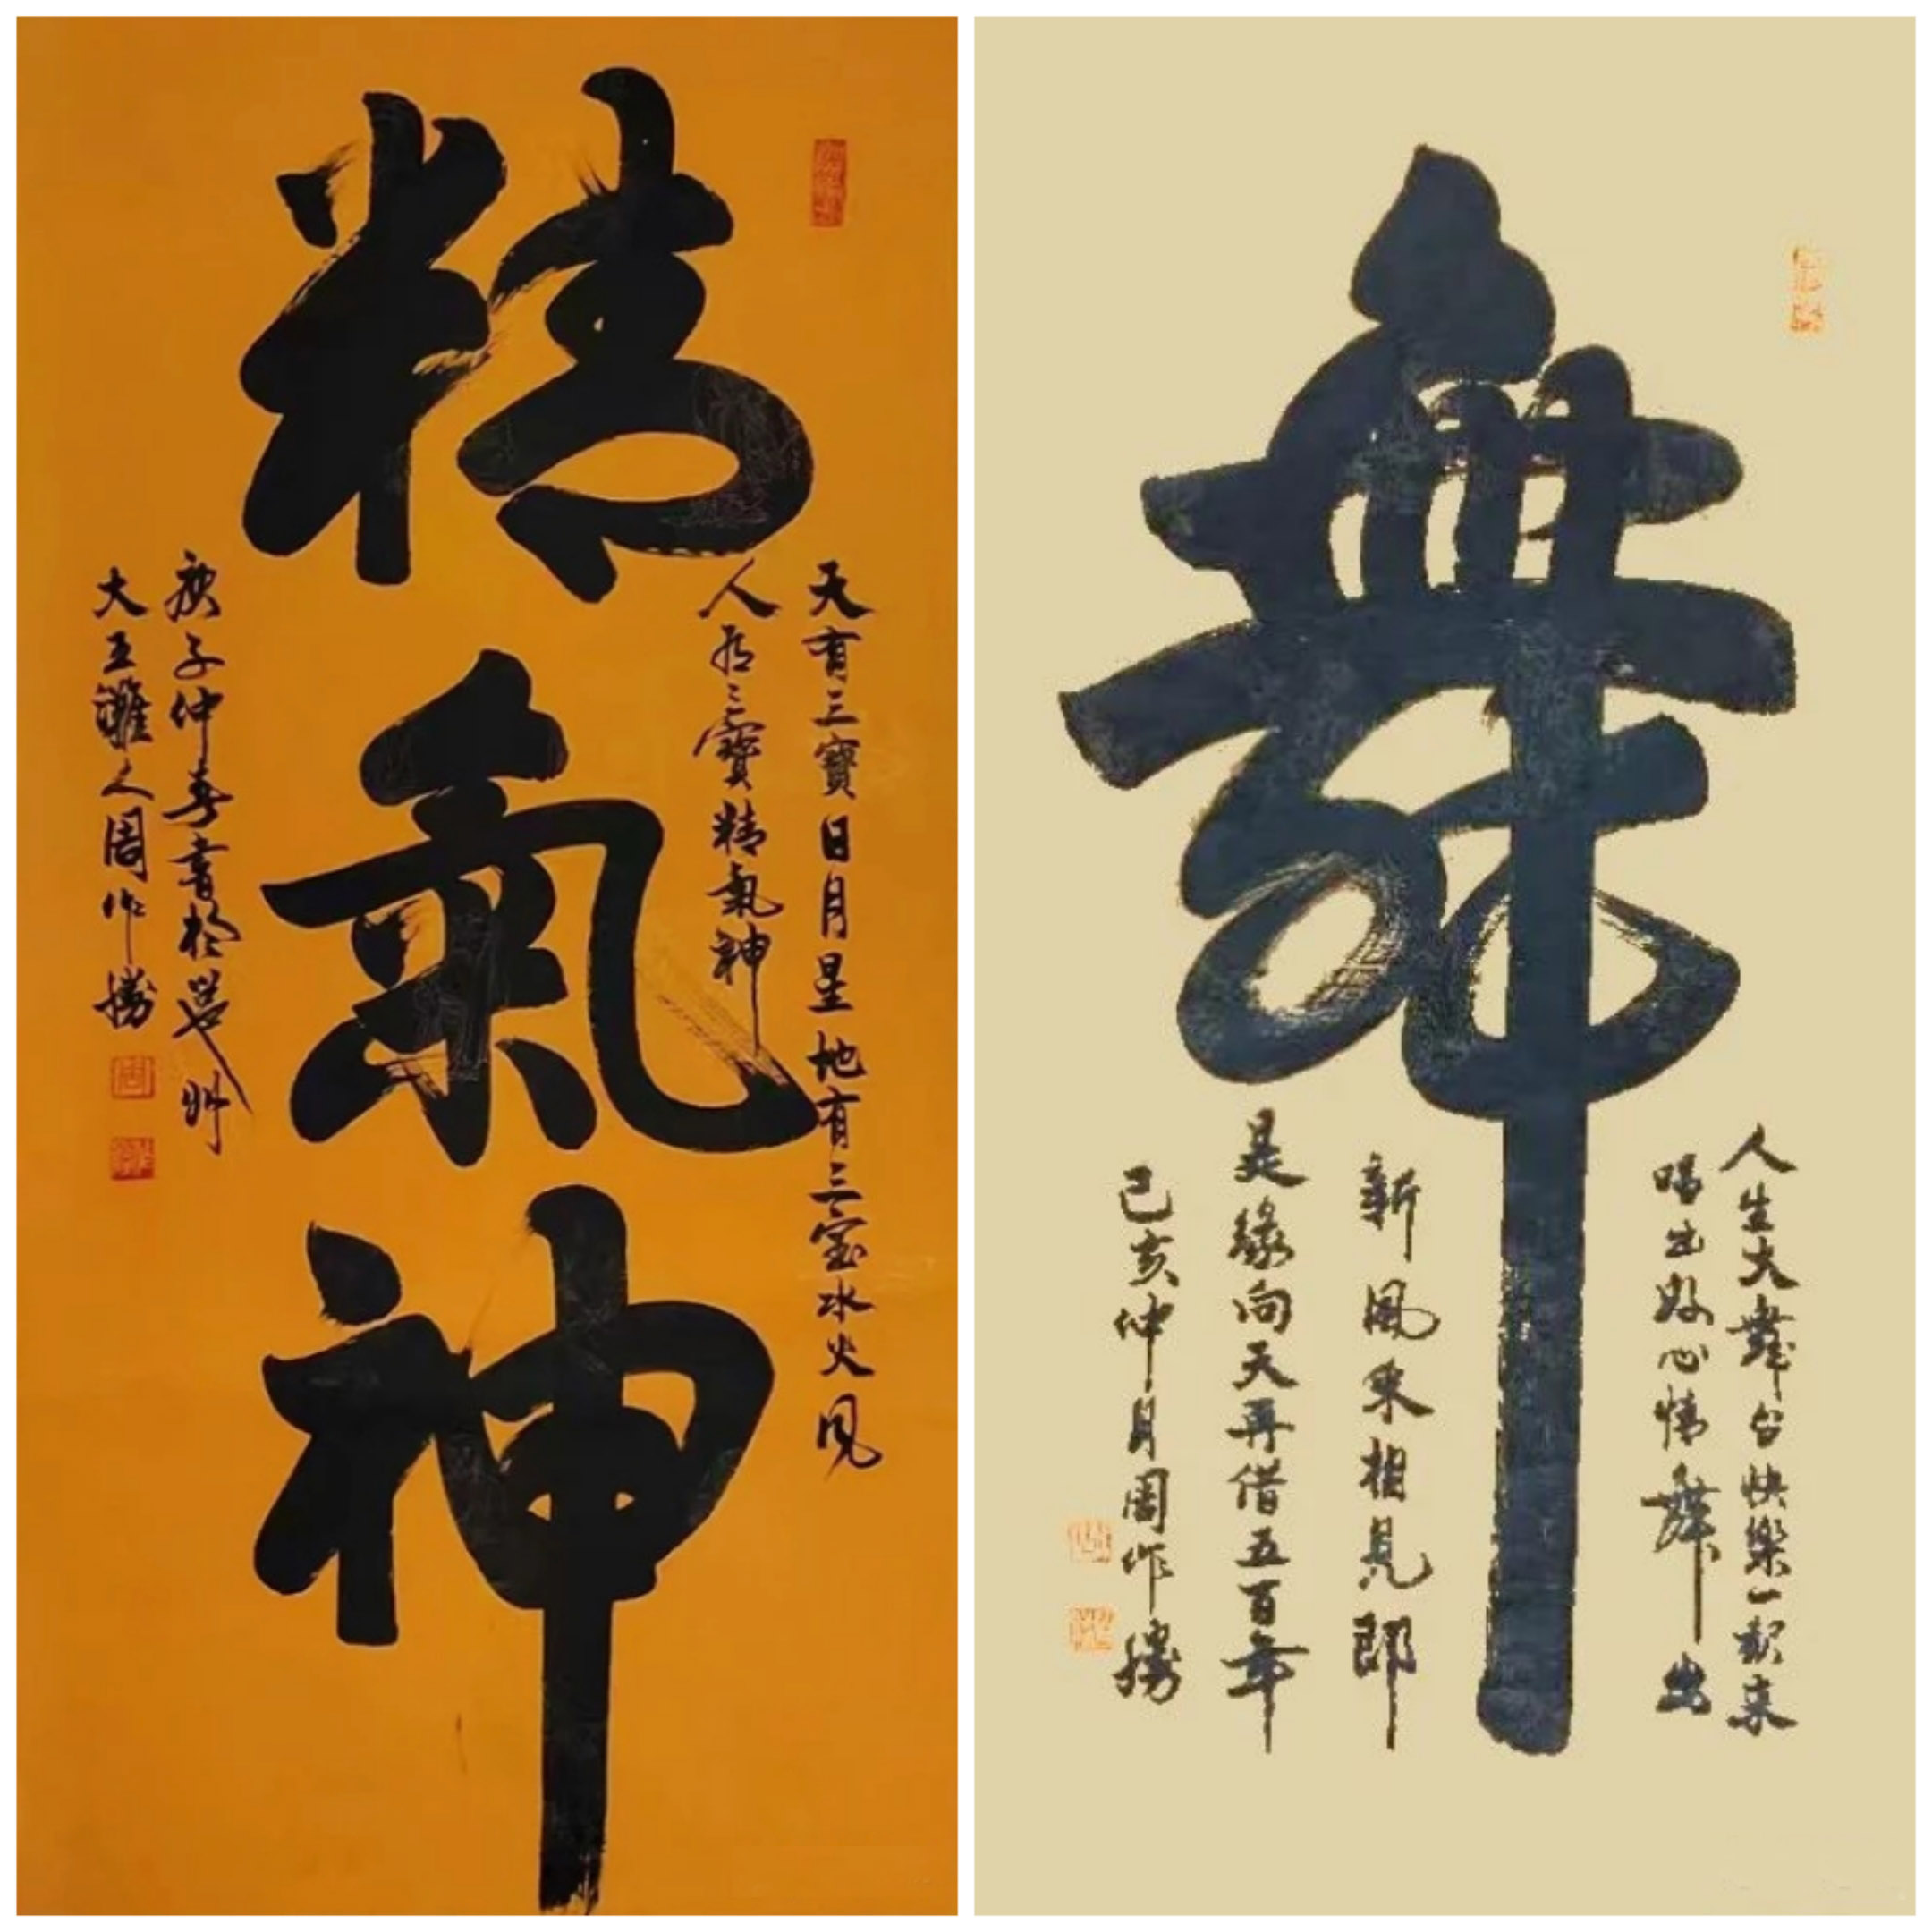 精氣神
天有三寶日月星地有三宝水火風
人有三寶精氣神
庚子仲春書於
大王灘人周作勝
周
舞
人生大舞台快樂一起来
唱出好心情舞出
新風采相見即
是緣向天再借五百年
己亥仲月周作勝